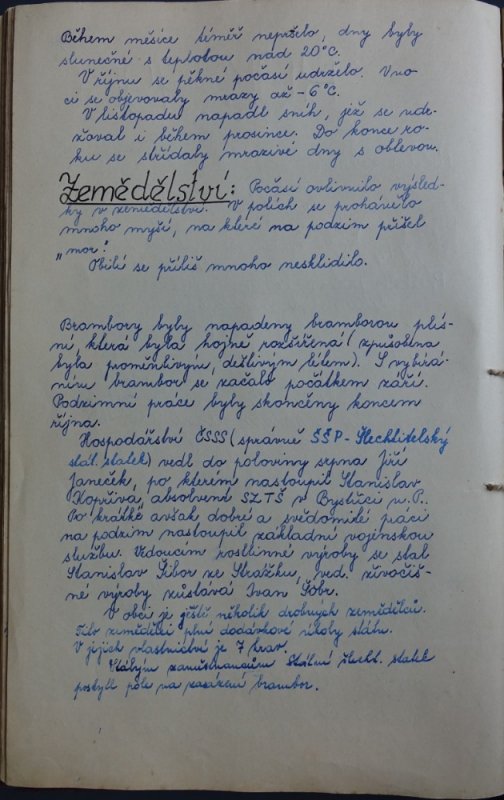 Během měsíce téměř nepršelo, dny byly
slunečné s teplotou nad 20°C.
V říjnu se pěkné počasí udrželo. V no-
ci se objevovaly mrazy až -6°C.
V listopadu napadl sníh, jež se udr-
žoval i během prosince. Do konce ro-
ku se střídaly mrazivé dny s oblevou.
Zemědělství: Počasí ovlivnilo výsled-
ky v zemědělství. V polích se prohánělo
mnoho myší, na které na podzim přišel
„mor".
Obilí se příliš mnoho nesklidilo.
Brambory byly napadeny bramborou plís-
ní, která byla hojně rozšířená (způsobena
byla proměnlivým, deštivým létem). S vybírá-
ním brambor se začalo počátkem září.
Podzimní práce byly skončeny koncem
října.
Hospodářství ČSSS (správně ŠŠP - Šlechtitelský
stát. statek) vedl do poloviny srpna Jiří
Janeček, po kterém nastoupil Stanislav
Kopřiva, absolvent SZTŠ v Bystřici n. P..
Po krátké avšak dobré a svědomité práci
na podzim nastoupil základní vojenskou
službu. Vedoucím rostlinné výroby se stal
Stanislav Šibor ze Stražku, ved. živočiš-
né výroby zůstává Ivan Šobr.
V obci je ještě několik drobných zemědělců.
Tito zemědělci plní dodávkové úkoly státu.
V jejich vlastnictví je 7 krav.
zaměstnancům Státní šlecht. statek
poskytl pole na zasázení brambor.